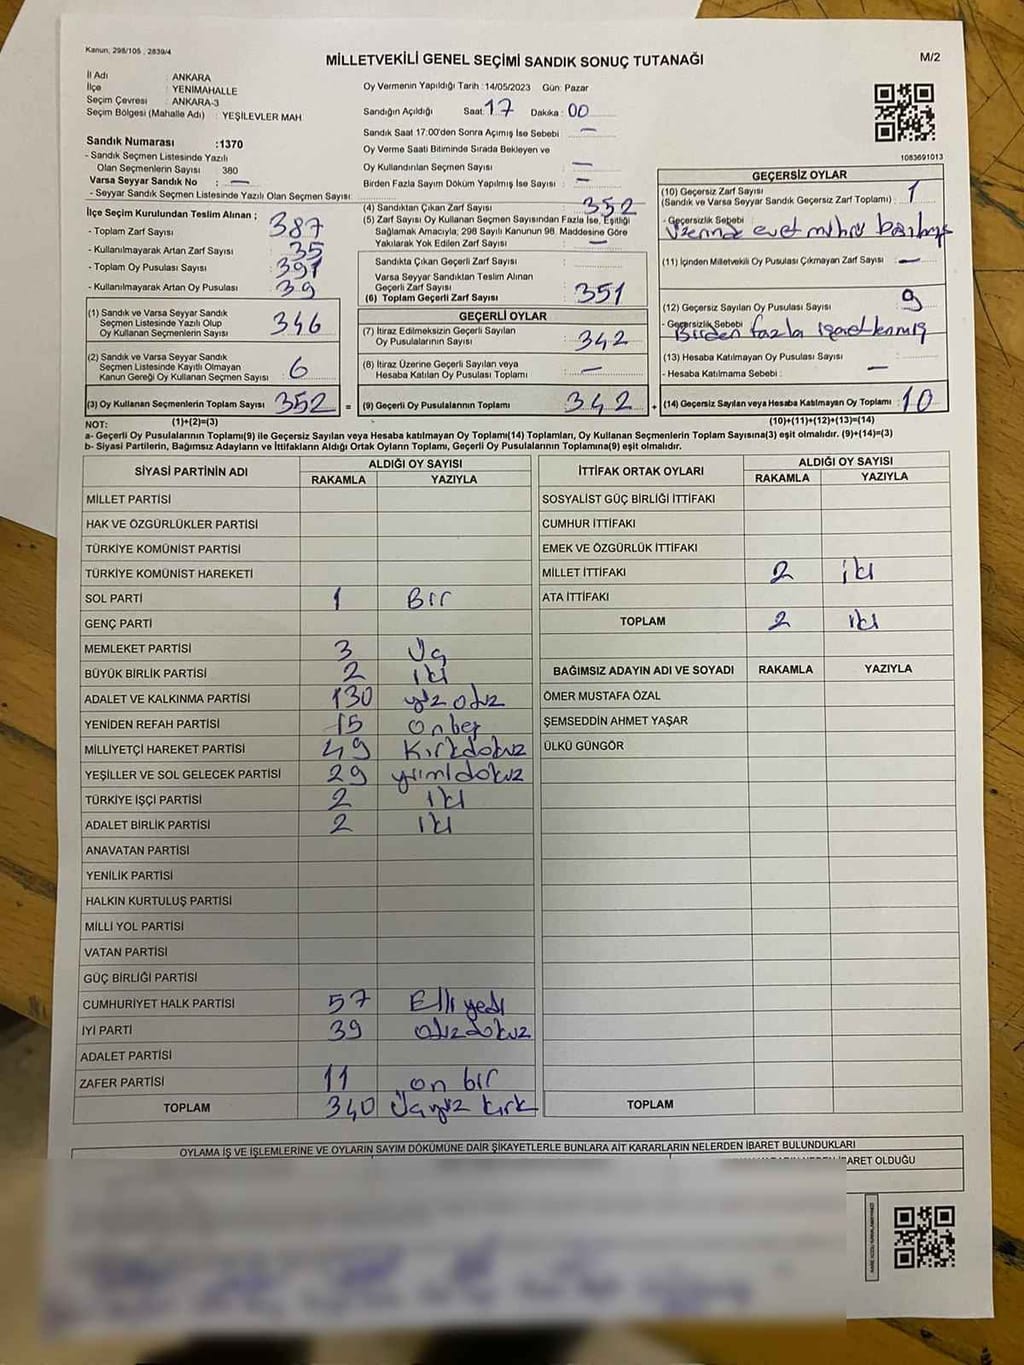 Kanun: 298/105 , 2839/4
MİLLETVEKİLİ GENEL SEÇİMİ SANDIK SONUÇ TUTANAĞI
M/2
İl Adı : ANKARA
İlçe : YENİMAHALLE
Seçim Çevresi : ANKARA-3
Seçim Bölgesi (Mahalle Adı) : YEŞİLEVLER MAH.
Sandık Numarası :1370
- Sandık Seçmen Listesinde Yazılı
Olan Seçmenlerin Sayısı 380
Varsa Seyyar Sandık No : —
- Seyyar Sandık Seçmen Listesinde Yazılı Olan Seçmen Sayısı:
Oy Vermenin Yapıldığı Tarih : 14/05/2023 Gün: Pazar
Sandığın Açıldığı Saat: 17 Dakika : 00
Sandık Saat 17:00'den Sonra Açımış İse Sebebi : —
Oy Verme Saati Bitiminde Sırada Bekleyen ve
Oy Kullandırılan Seçmen Sayısı : —
Birden Fazla Sayım Döküm Yapılmış İse Sayısı : —
1083691013
İlçe Seçim Kurulundan Teslim Alınan ;
- Toplam Zarf Sayısı : 387
- Kullanılmayarak Artan Zarf Sayısı : 35
- Toplam Oy Pusulası Sayısı : 391
- Kullanılmayarak Artan Oy Pusulası : 39
(1) Sandık ve Varsa Seyyar Sandık
Seçmen Listesinde Yazılı Olup
Oy Kullanan Seçmenlerin Sayısı : 346
(2) Sandık ve Varsa Seyyar Sandık
Seçmen Listesinde Kayıtlı Olmayan
Kanun Gereği Oy Kullanan Seçmen Sayısı : 6
(3) Oy Kullanan Seçmenlerin Toplam Sayısı : 352 =
(1)+(2)=(3)
(4) Sandıktan Çıkan Zarf Sayısı : 352
(5) Zarf Sayısı Oy Kullanan Seçmen Sayısından Fazla İse, Eşitliği
Sağlamak Amacıyla; 298 Sayılı Kanunun 98. Maddesine Göre
Yakılarak Yok Edilen Zarf Sayısı : —
Sandıkta Çıkan Geçerli Zarf Sayısı :
Varsa Seyyar Sandıktan Teslim Alınan
Geçerli Zarf Sayısı :
(6) Toplam Geçerli Zarf Sayısı : 351
GEÇERLİ OYLAR
(7) İtiraz Edilmeksizin Geçerli Sayılan
Oy Pusulalarının Sayısı : 342
(8) İtiraz Üzerine Geçerli Sayılan veya
Hesaba Katılan Oy Pusulası Toplamı : —
(9) Geçerli Oy Pusulalarının Toplamı : 342 +
GEÇERSİZ OYLAR
(10) Geçersiz Zarf Sayısı : 1
(Sandık ve Varsa Seyyar Sandık Geçersiz Zarf Toplamı)
- Geçersizlik Sebebi :
Üzerine evet mührü basılmış
(11) İçinden Milletvekili Oy Pusulası Çıkmayan Zarf Sayısı : —
(12) Geçersiz Sayılan Oy Pusulası Sayısı : 9
- Geçersizlik Sebebi :
Birden fazla işaretlenmiş
(13) Hesaba Katılmayan Oy Pusulası Sayısı : —
- Hesaba Katılmama Sebebi :
(14) Geçersiz Sayılan veya Hesaba Katılmayan Oy Toplamı : 10
(10)+(11)+(12)+(13)=(14)
NOT:
a- Geçerli Oy Pusulalarının Toplamı(9) ile Geçersiz Sayılan veya Hesaba katılmayan Oy Toplamı(14) Toplamları, Oy Kullanan Seçmenlerin Toplam Sayısına(3) eşit olmalıdır. (9)+(14)=(3)
b- Siyasi Partilerin, Bağımsız Adayların ve İttifakların Aldığı Ortak Oyların Toplamı, Geçerli Oy Pusulalarının Toplamına(9) eşit olmalıdır.
SİYASİ PARTİNİN ADI ALDIĞI OY SAYISI
RAKAMLA YAZIYLA
MİLLET PARTİSİ
HAK VE ÖZGÜRLÜKLER PARTİSİ
TÜRKİYE KOMÜNİST PARTİSİ
TÜRKİYE KOMÜNİST HAREKETİ
SOL PARTİ 1 Bir
GENÇ PARTİ
MEMLEKET PARTİSİ 3 Üç
BÜYÜK BİRLİK PARTİSİ 2 iki
ADALET VE KALKINMA PARTİSİ 130 yüz otuz
YENİDEN REFAH PARTİSİ 15 onbeş
MİLLİYETÇİ HAREKET PARTİSİ 49 Kırkdokuz
YEŞİLLER VE SOL GELECEK PARTİSİ 29 yirmidokuz
TÜRKİYE İŞÇİ PARTİSİ 2 iki
ADALET BİRLİK PARTİSİ 2 iki
ANAVATAN PARTİSİ
YENİLİK PARTİSİ
HALKIN KURTULUŞ PARTİSİ
MİLLİ YOL PARTİSİ
VATAN PARTİSİ
GÜÇ BİRLİĞİ PARTİSİ
CUMHURİYET HALK PARTİSİ 57 Elli yedi
İYİ PARTİ 39 otuzdokuz
ADALET PARTİSİ
ZAFER PARTİSİ 11 on bir
TOPLAM 340 Üçyüz kırk
İTTİFAK ORTAK OYLARI ALDIĞI OY SAYISI
RAKAMLA YAZIYLA
SOSYALİST GÜÇ BİRLİĞİ İTTİFAKI
CUMHUR İTTİFAKI
EMEK VE ÖZGÜRLÜK İTTİFAKI
MİLLET İTTİFAKI 2 iki
ATA İTTİFAKI
TOPLAM 2 iki
BAĞIMSIZ ADAYIN ADI VE SOYADI RAKAMLA YAZIYLA
ÖMER MUSTAFA ÖZAL
ŞEMSEDDİN AHMET YAŞAR
ÜLKÜ GÜNGÖR
TOPLAM
OYLAMA İŞ VE İŞLEMLERİNE VE OYLARIN SAYIM DÖKÜMÜNE DAİR ŞİKAYETLERLE BUNLARA AİT KARARLARIN NELERDEN İBARET BULUNDUKLARI
İBARET OLDUĞU